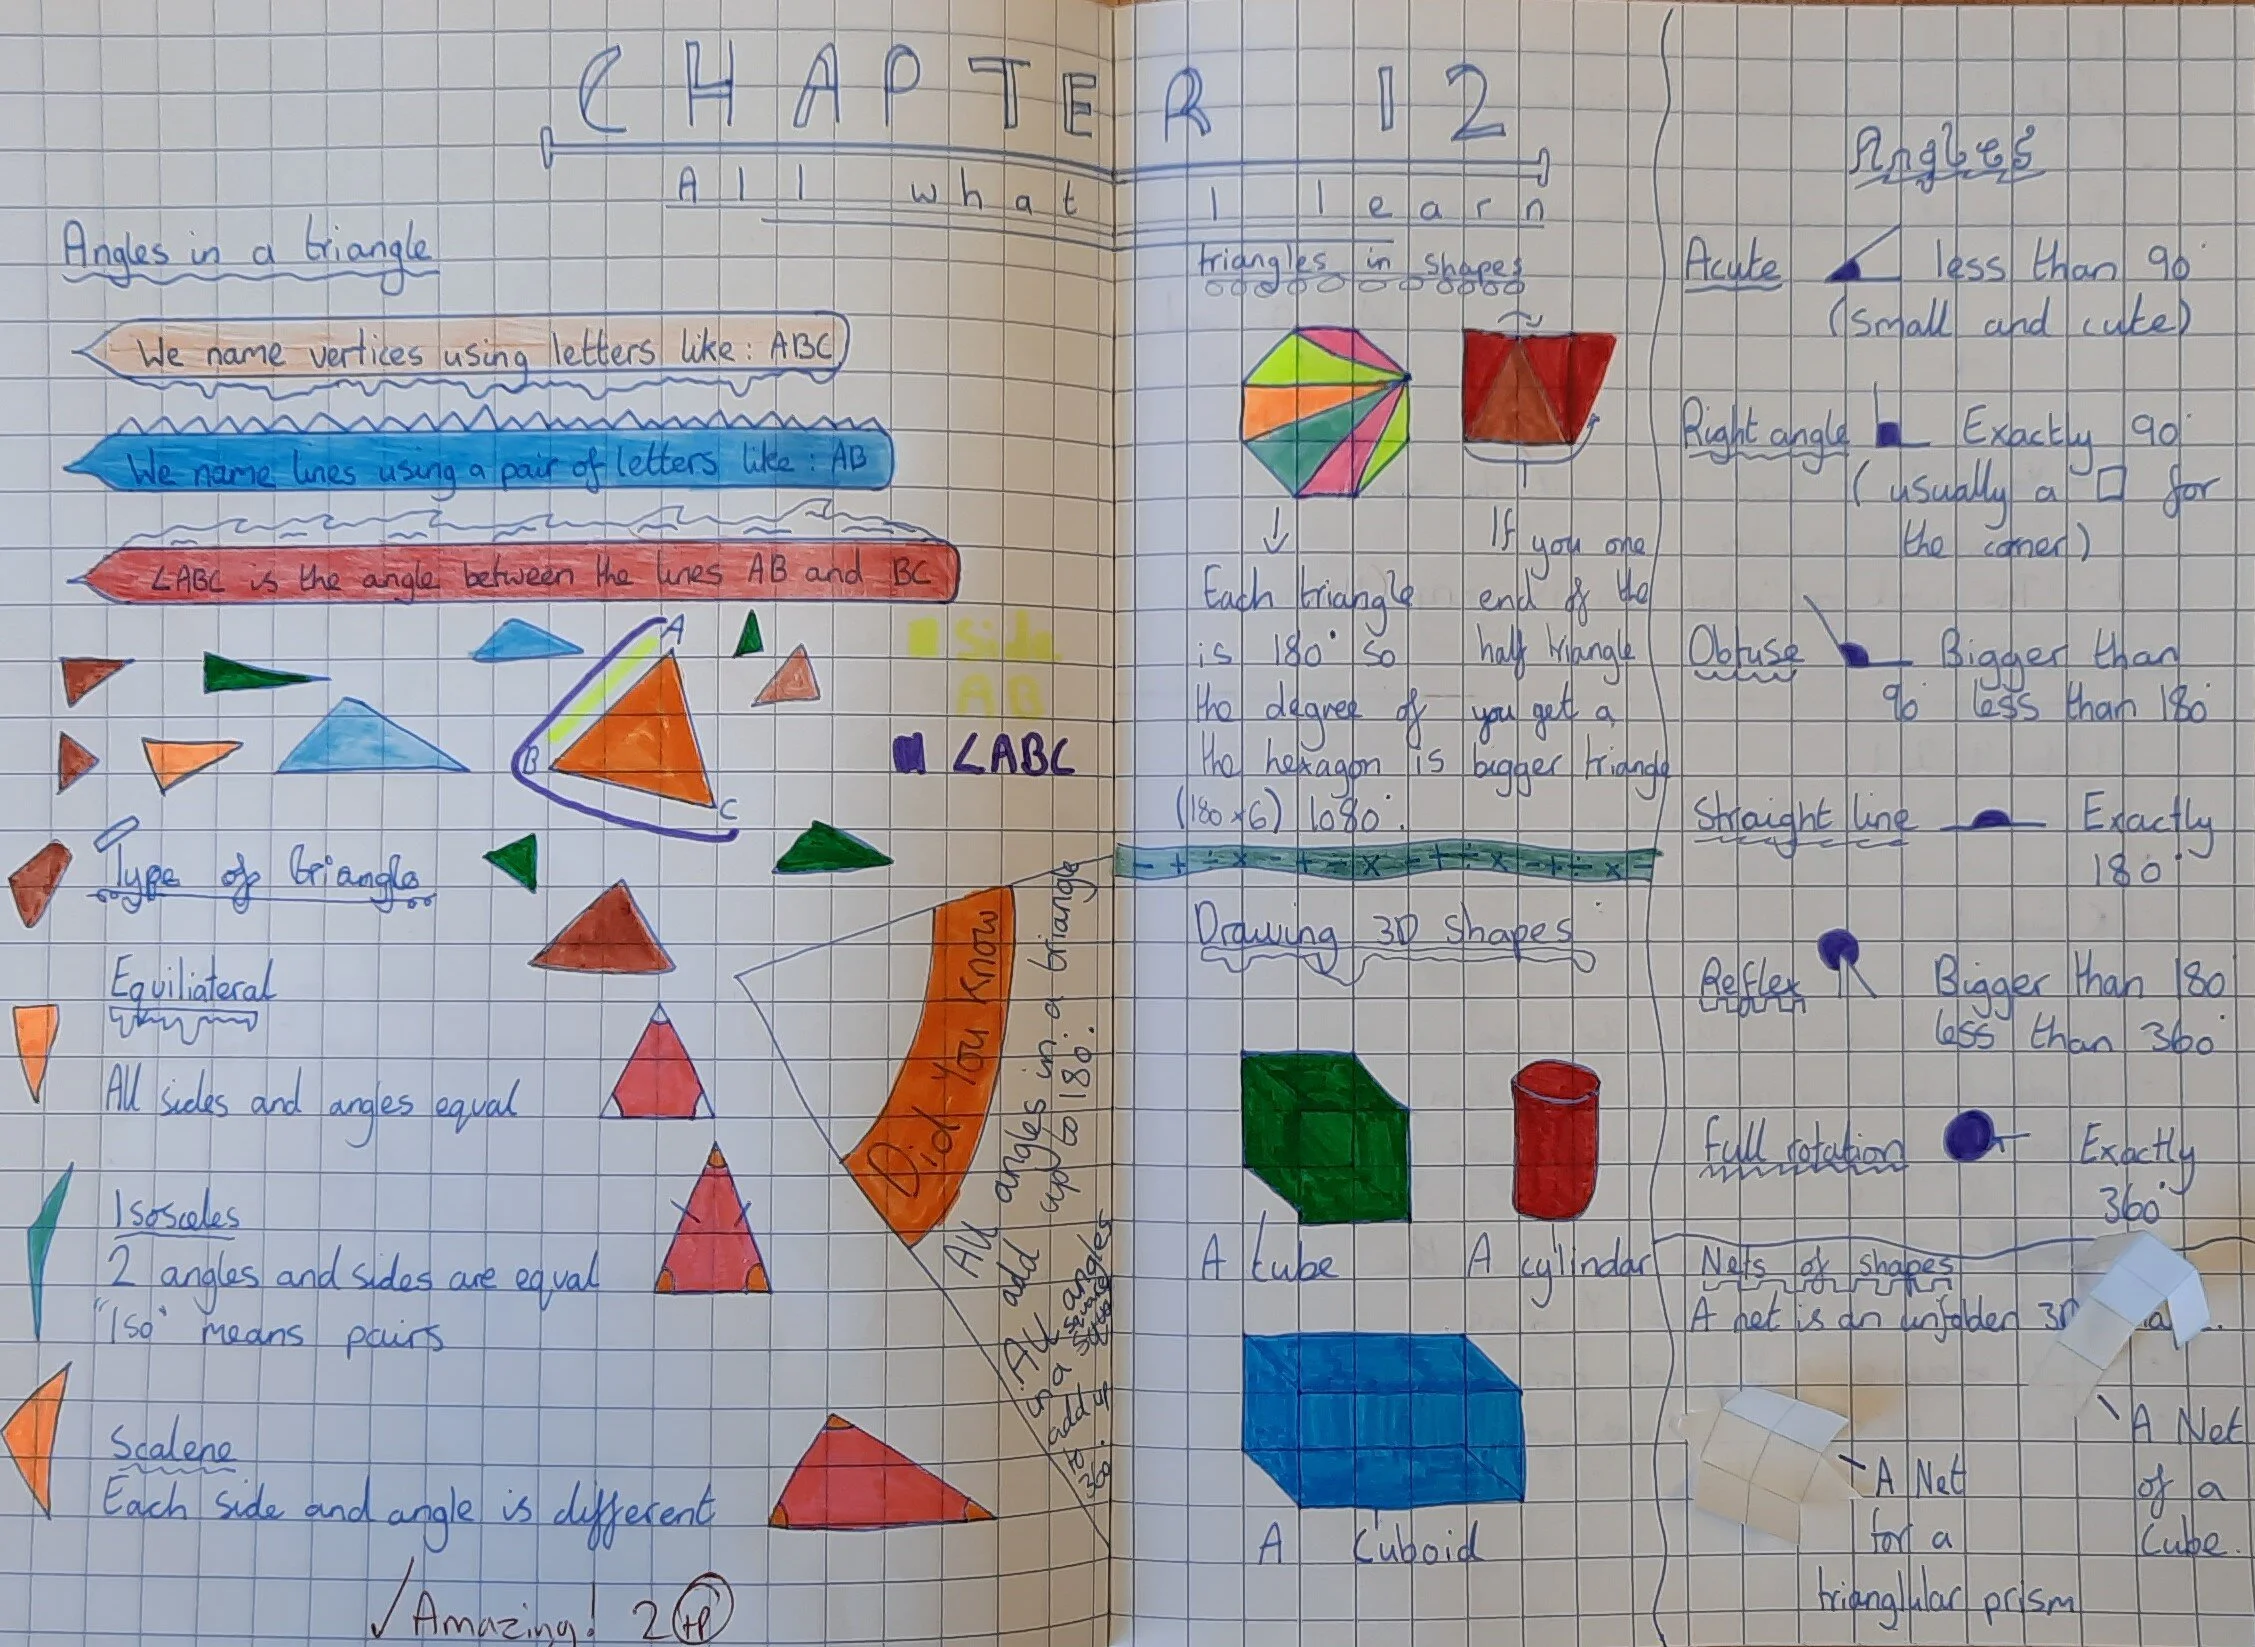 CHAPTER 12
All what I learn
Angles in a triangle
We name vertices using letters like: ABC
We name lines using a pair of letters like: AB
∠ABC is the angle between the lines AB and BC
A
B
C
Side
AB
∠ABC
Type of triangle
Equiliateral
All sides and angles equal
Isosceles
2 angles and sides are equal
"Iso" means pairs
Scalene
Each side and angle is different
✓ Amazing! 2 HP
Did You Know
All angles in a triangle
add up to 180°.
All angles
in a square
add up
to 360°.
triangles in shapes
Each triangle
is 180° so
the degree of
the hexagon is
(180×6) 1080°.
If you one
end of the
half triangle
you get a
bigger triangle
- + ÷ × - + ÷ × - + ÷ × - + ÷ × -
Drawing 3D shapes
A tube
A cylindar
A Cuboid
Angles
Acute less than 90°
(small and cute)
Right angle Exactly 90°
(usually a □ for
the corner)
Obtuse Bigger than
90° less than 180°
Straight line Exactly
180°
Reflex Bigger than 180
less than 360°
Full rotation Exactly
360°
Nets of shapes
A net is an unfolden 3D
A Net
of a
Cube.
A Net
for a
trianglular prism